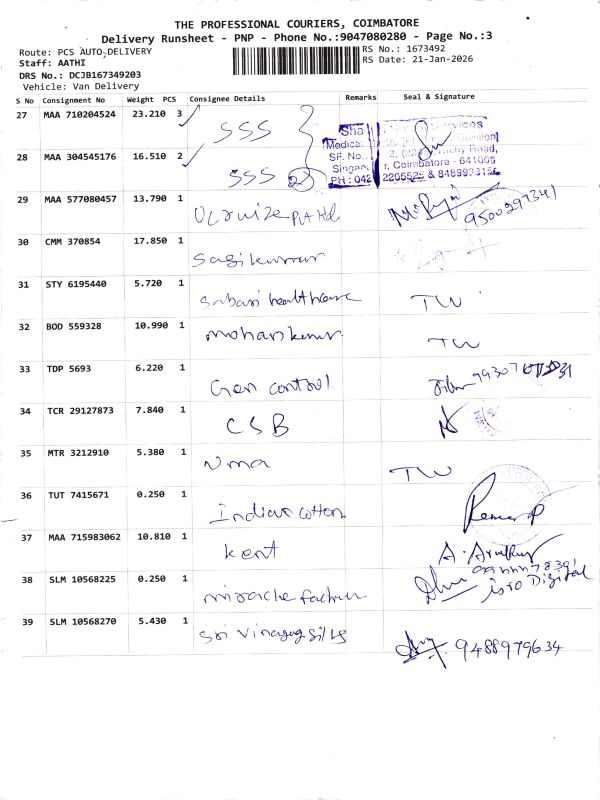 THE PROFESSIONAL COURIERS, COIMBATORE
Delivery Runsheet - PNP - Phone No.:9047080280 - Page No.:3
Route: PCS AUTO DELIVERY
Staff: AATHI
DRS No.: DCJB167349203
Vehicle: Van Delivery
RS No.: 1673492
RS Date: 21-Jan-2026
S No Consignment No Weight PCS Consignee Details Remarks Seal & Signature
27 MAA 710204524 23.210 3 SSS
28 MAA 304545176 16.510 2 SSS 2
Sha Services
Medical Division
SF. No. 2, Road,
Singan r, Coimbatore - 641005
PH : 042 2205525 &
29 MAA 577080457 13.790 1 Pvt Ltd 9500297341
30 CMM 370854 17.850 1 Sasikumar
31 STY 6195440 5.720 1 Sabari healthcare TW
32 BOD 559328 10.990 1 mohankumar TW
33 TDP 5693 6.220 1 Gen control
34 TCR 29127873 7.840 1 CSB
35 MTR 3212910 5.380 1 Uma TW
36 TUT 7415671 0.250 1 Indian cotton
37 MAA 715983062 10.810 1 Kent
38 SLM 10568225 0.250 1 isro Digital
39 SLM 10568270 5.430 1 Sri Vinayaga silks 9488979634